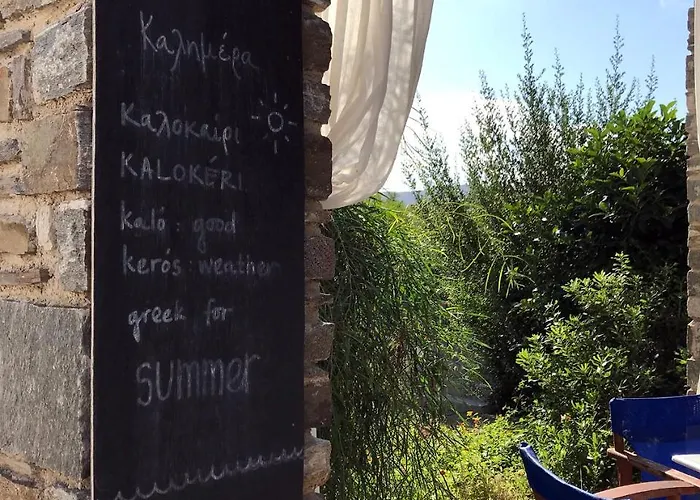 Καλημέρα
Καλοκαίρι
KALOKÉRI
kaló : good
kerós : weather
greek for
summer